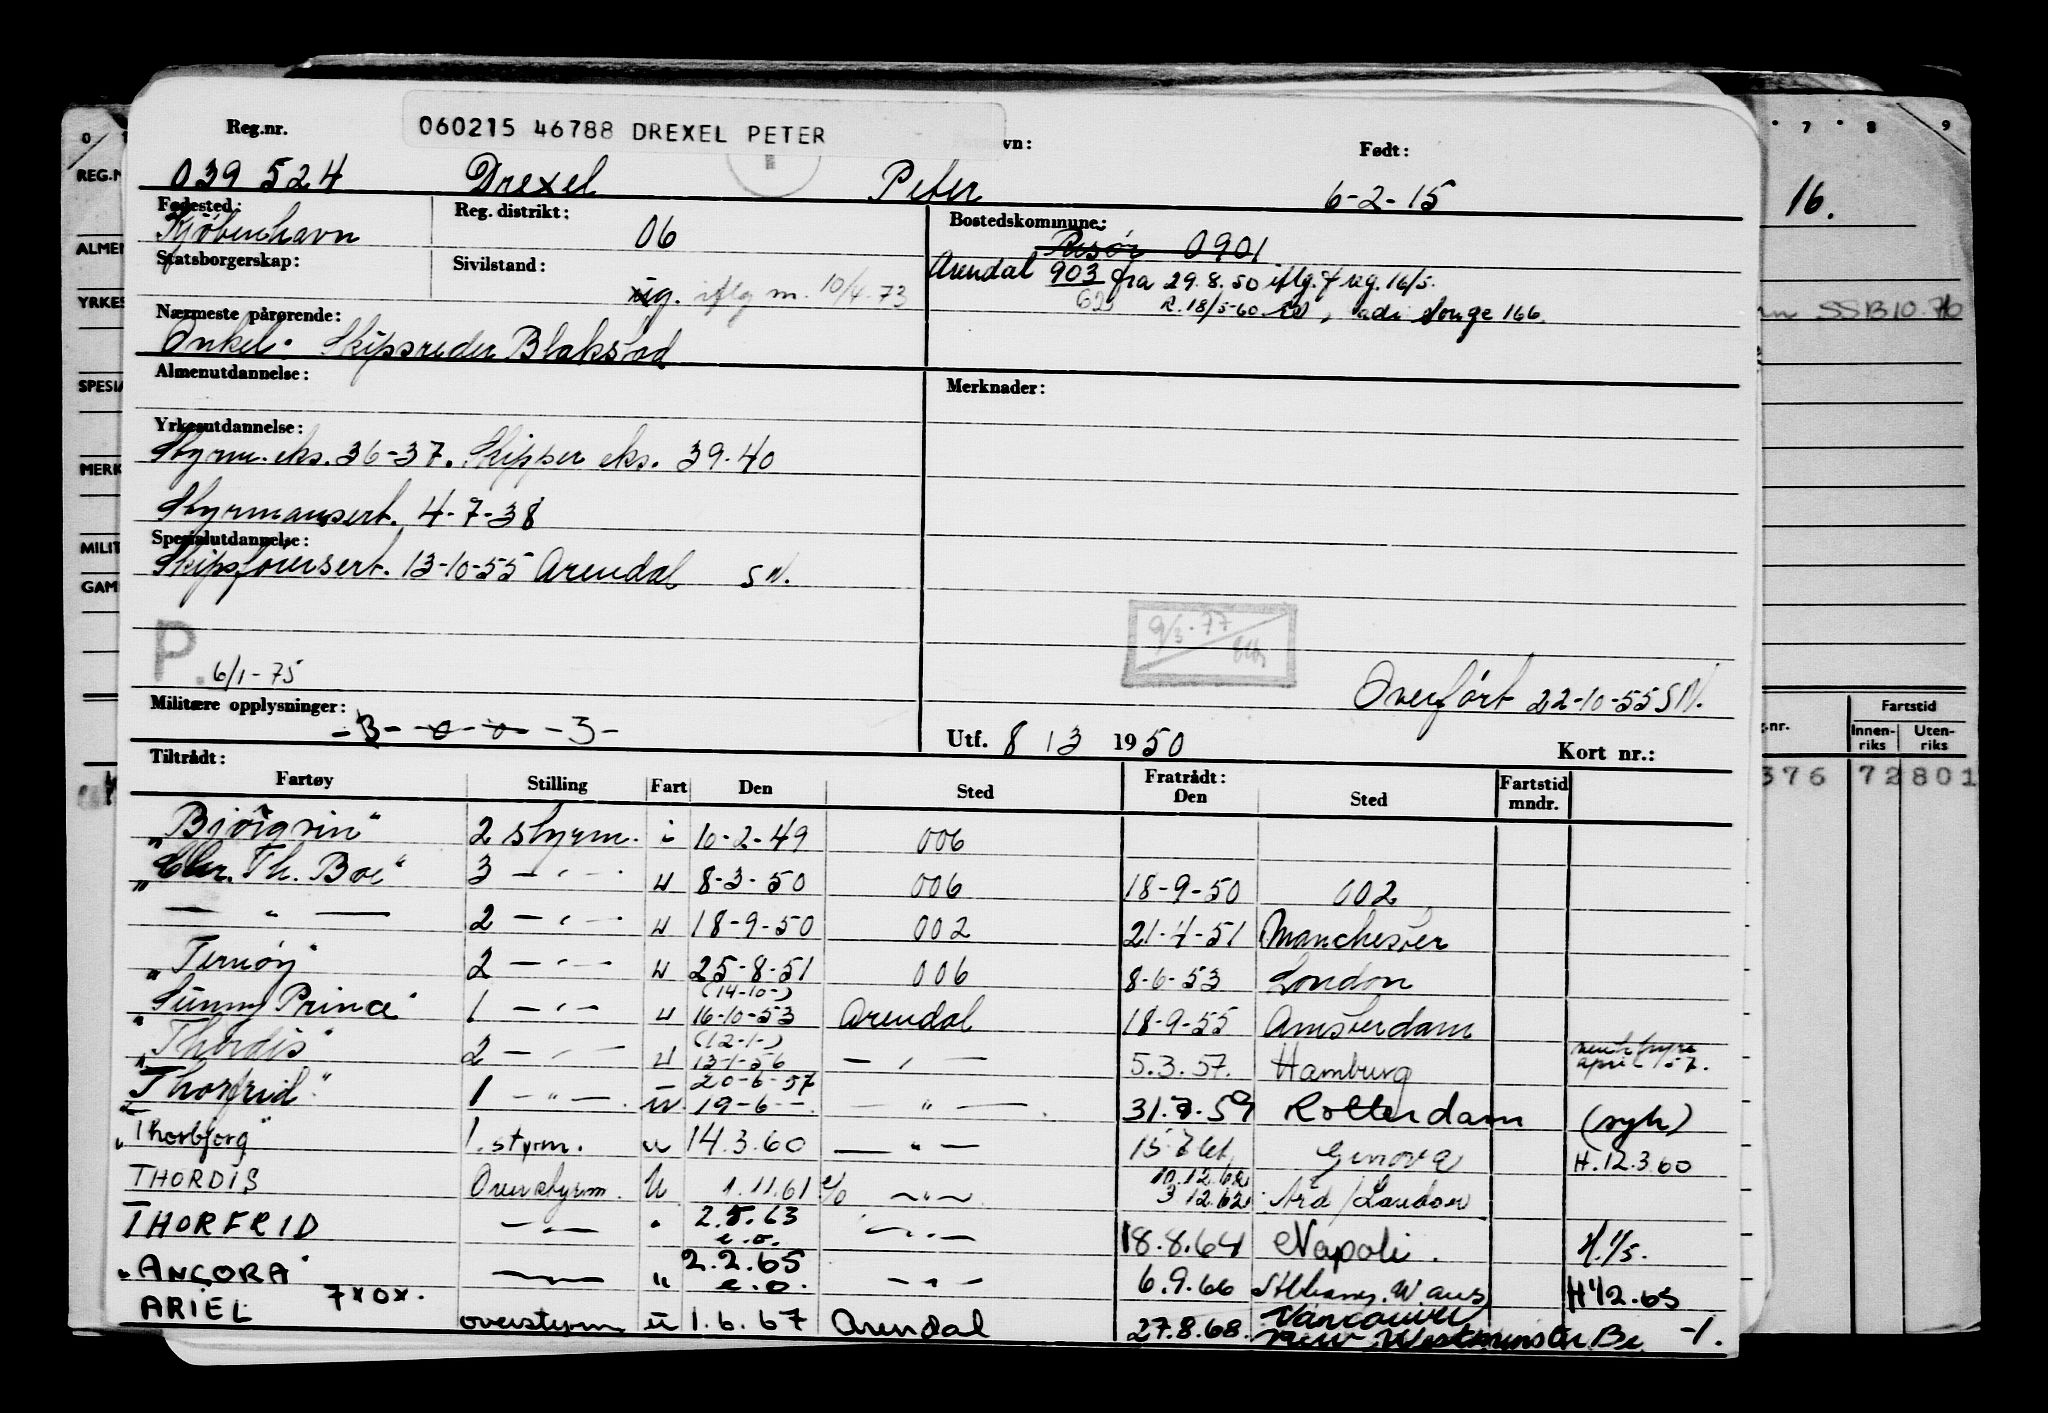 060215 46788 DREXEL PETER
Reg.nr. vn: Født:
039 524 Drexel Peter 6-2-15
Fødested: Reg. distrikt: Bostedskommune:
Kjøbenhavn 06 Risør 0901
Statsborgerskap: Sivilstand: Arendal 903 fra 29.8.50 iflg. f reg. 16/5.
ug. iflg m. 10/4.73 R. 18/5-60 Songe 166
Nærmeste pårørende:
Onkel: Skipsreder Blakstad
Almenutdannelse: Merknader:
Yrkesutdannelse:
Styrm. eks. 36-37. Skipper eks. 39-40
Styrmansert. 4-7-38
Spesialutdannelse:
Skipsførersert. 13-10-55 Arendal SN.
9/3-77
P. 6/1-75
Overført 22-10-55 SN.
Militære opplysninger:
-3- -0-0- -3-
Utf. 8 / 3 1950 Kort nr.:
Tiltrådt: Fratrådt:
Fartøy Stilling Fart Den Sted Den Sted Fartstid mndr.
"Bjørgvin" 2 styrm. i 10-2-49 006
"Chr. Th. Boe" 3 — " — u 8-3-50 006 18-9-50 002
— " — 2 — " — u 18-9-50 002 21-4-51 Manchester
"Ternøy" 2 — " — u 25-8-51 006 8-6-53 London
"Sunny Prince" 1 — " — u (14-10-) 16-10-53 Arendal 18-9-55 Amsterdam
"Thordis" 2 — " — u (12-1-) 13-1-56 — " — 5.3.57. Hamburg april/57.
"Thorfrid" 1 — " — u 20-6-57 19-6-- — " — 31.7.59 Rotterdam (syk)
"Thorbjorg" 1. styrm. u 14.3.60 — " — 15 Genova H.12.3.60
THORDIS Overstyrm. U 1.11.61 e/o — " — 10.12.62 3 12.62 Ard/London
THORFRID — " — " 2.5.63 e.o. — " — 18.8.64 Napoli. H.1/5.
"ANCORA" — " — " 2.2.65 e.o. — " — 6.9.66 Albany. W aus H 1/2.65
7xox.
ARIEL overstyrm u 1.6.67 Arendal 27.8.68. Vancouver New Westminster Bc -1.
0 7 8 9
REG.N
16.
ALMEN
YRKES
SSB 10.76
SPESIA
MERK
MILIT
GAM
.nr. Fartstid
Innenriks Utenriks
376 72 801